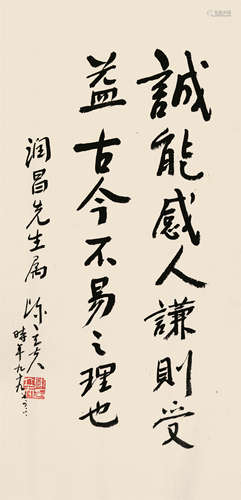 誠能感人謙則受
益古今不易之理也
润昌先生属
时年九十九